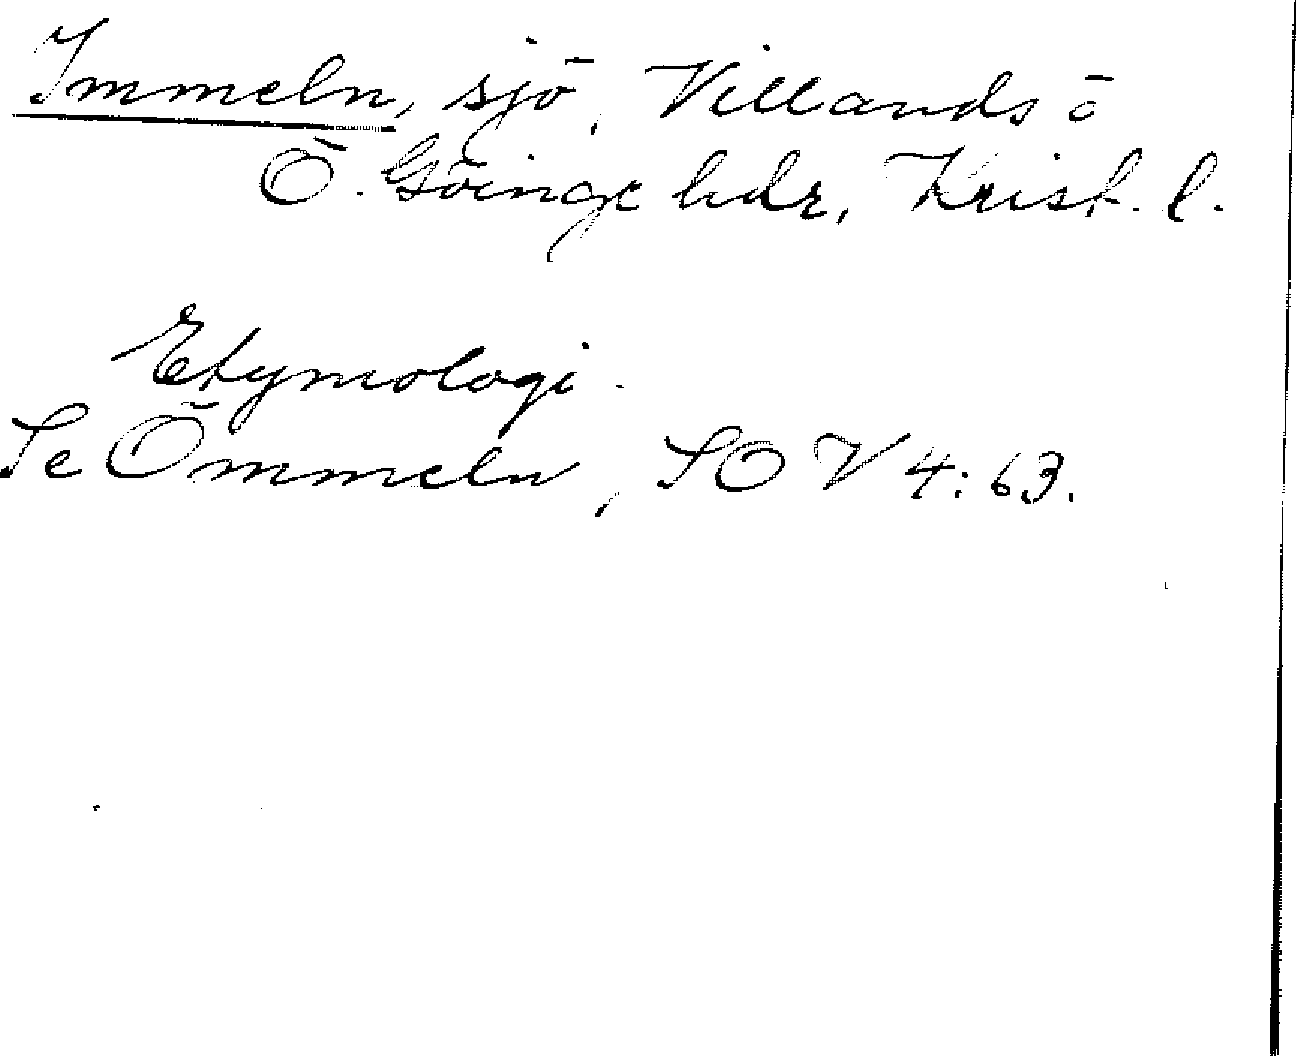 Immeln, sjö, Villands o
Ö. Göinge hdr, Krist. l.
Etymologi.
Se Ömmeln, SOV 4:63.